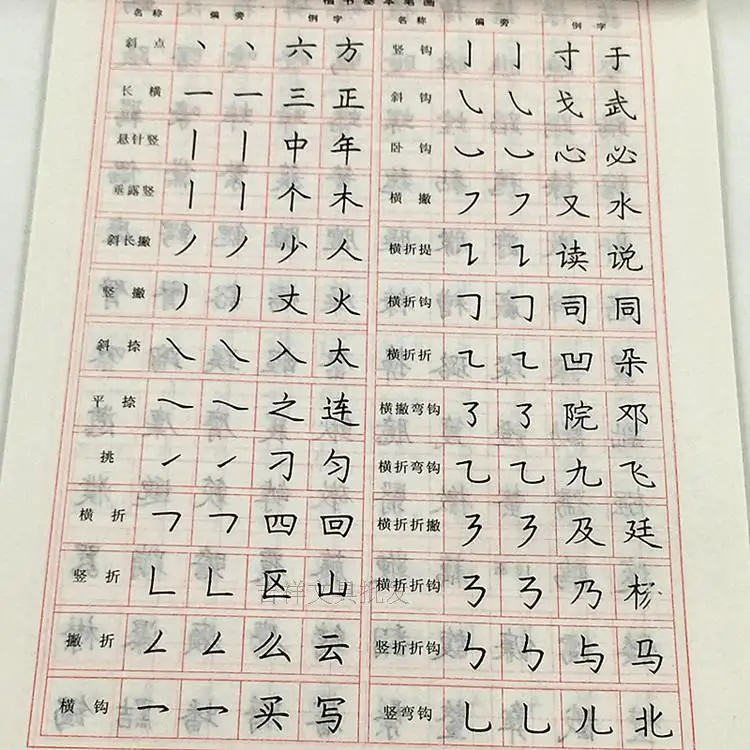 楷书基本笔画
名称 偏旁 例字
斜点 丶 丶 六 方
长横 一 一 三 正
悬针竖 丨 丨 中 年
垂露竖 丨 丨 个 木
斜长撇 丿 丿 少 人
竖撇 丿 丿 丈 火
斜捺 ㇏ ㇏ 入 太
平捺 ㇏ ㇏ 之 连
挑 ㇀ ㇀ 刁 匀
横折 𠃍 𠃍 四 回
竖折 𠃊 𠃊 区 山
撇折 𠃋 𠃋 么 云
横钩 乛 乛 买 写
名称 偏旁 例字
竖钩 亅 亅 寸 于
斜钩 ㇂ ㇂ 戈 武
卧钩 ㇃ ㇃ 心 必
横撇 ㇇ ㇇ 又 水
横折提 ㇊ ㇊ 读 说
横折钩 𠃌 𠃌 司 同
横折折 ㇍ ㇍ 凹 朵
横撇弯钩 ㇌ ㇌ 院 邓
横折弯钩 ㇈ ㇈ 九 飞
横折折撇 ㇋ ㇋ 及 廷
横折折钩 ㇡ ㇡ 乃
竖折折钩 ㇉ ㇉ 与 马
竖弯钩 乚 乚 儿 北
吉祥文具批发